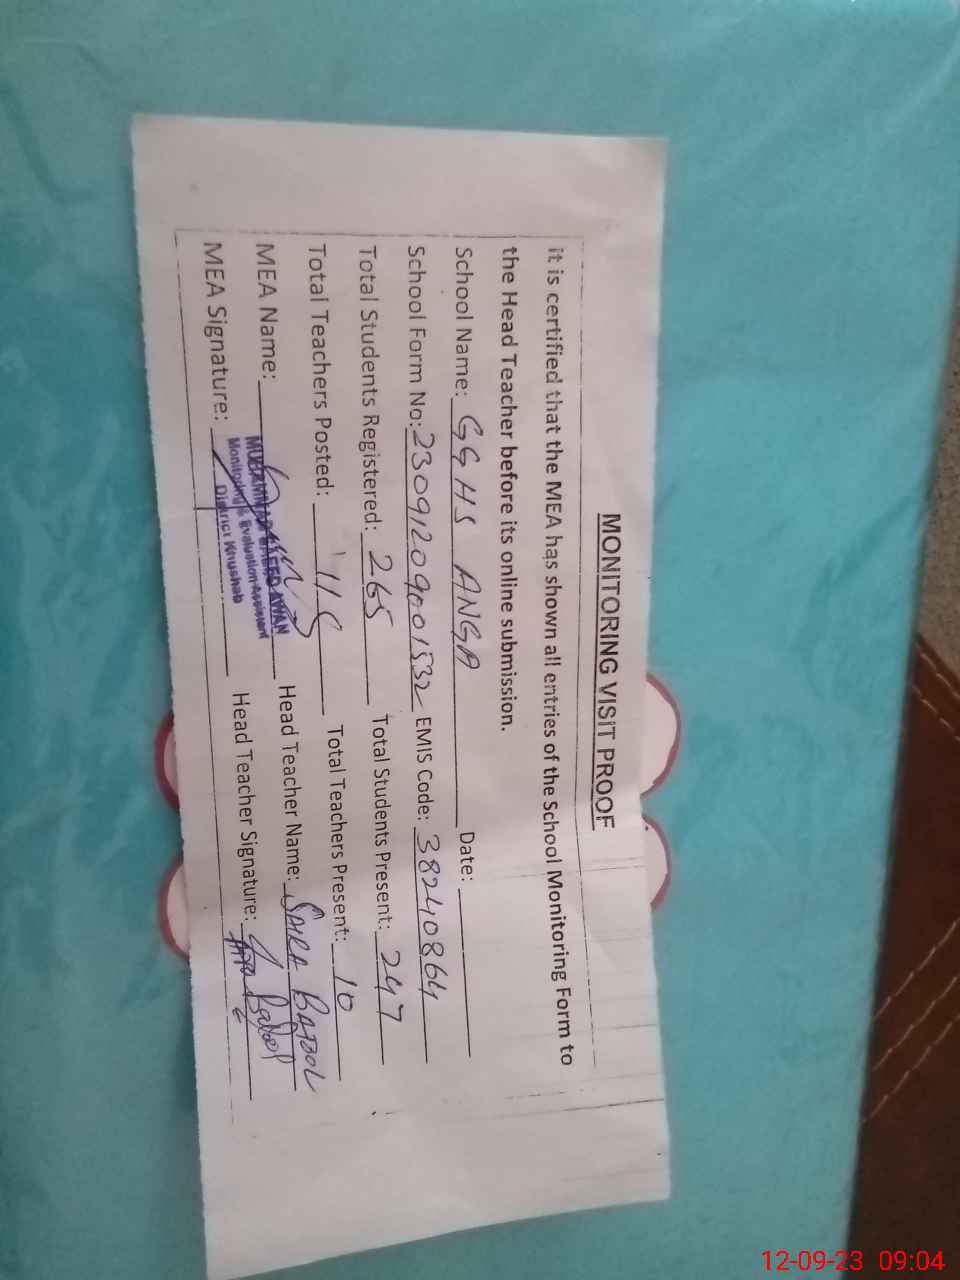 MONITORING VISIT PROOF
it is certified that the MEA has shown all entries of the School Monitoring Form to
the Head Teacher before its online submission.
School Name: GGHS ANGA Date:
School Form No: 23091209001532 EMIS Code: 38240864
Total Students Registered: 265 Total Students Present: 247
Total Teachers Posted: 11 Total Teachers Present: 10
MEA Name: Head Teacher Name: SAIRA BATOOL
MUHAMMAD SAEED AWAN
Monitoring & Evaluation Assistant
District Khushab
MEA Signature: Head Teacher Signature:
12-09-23 09:04